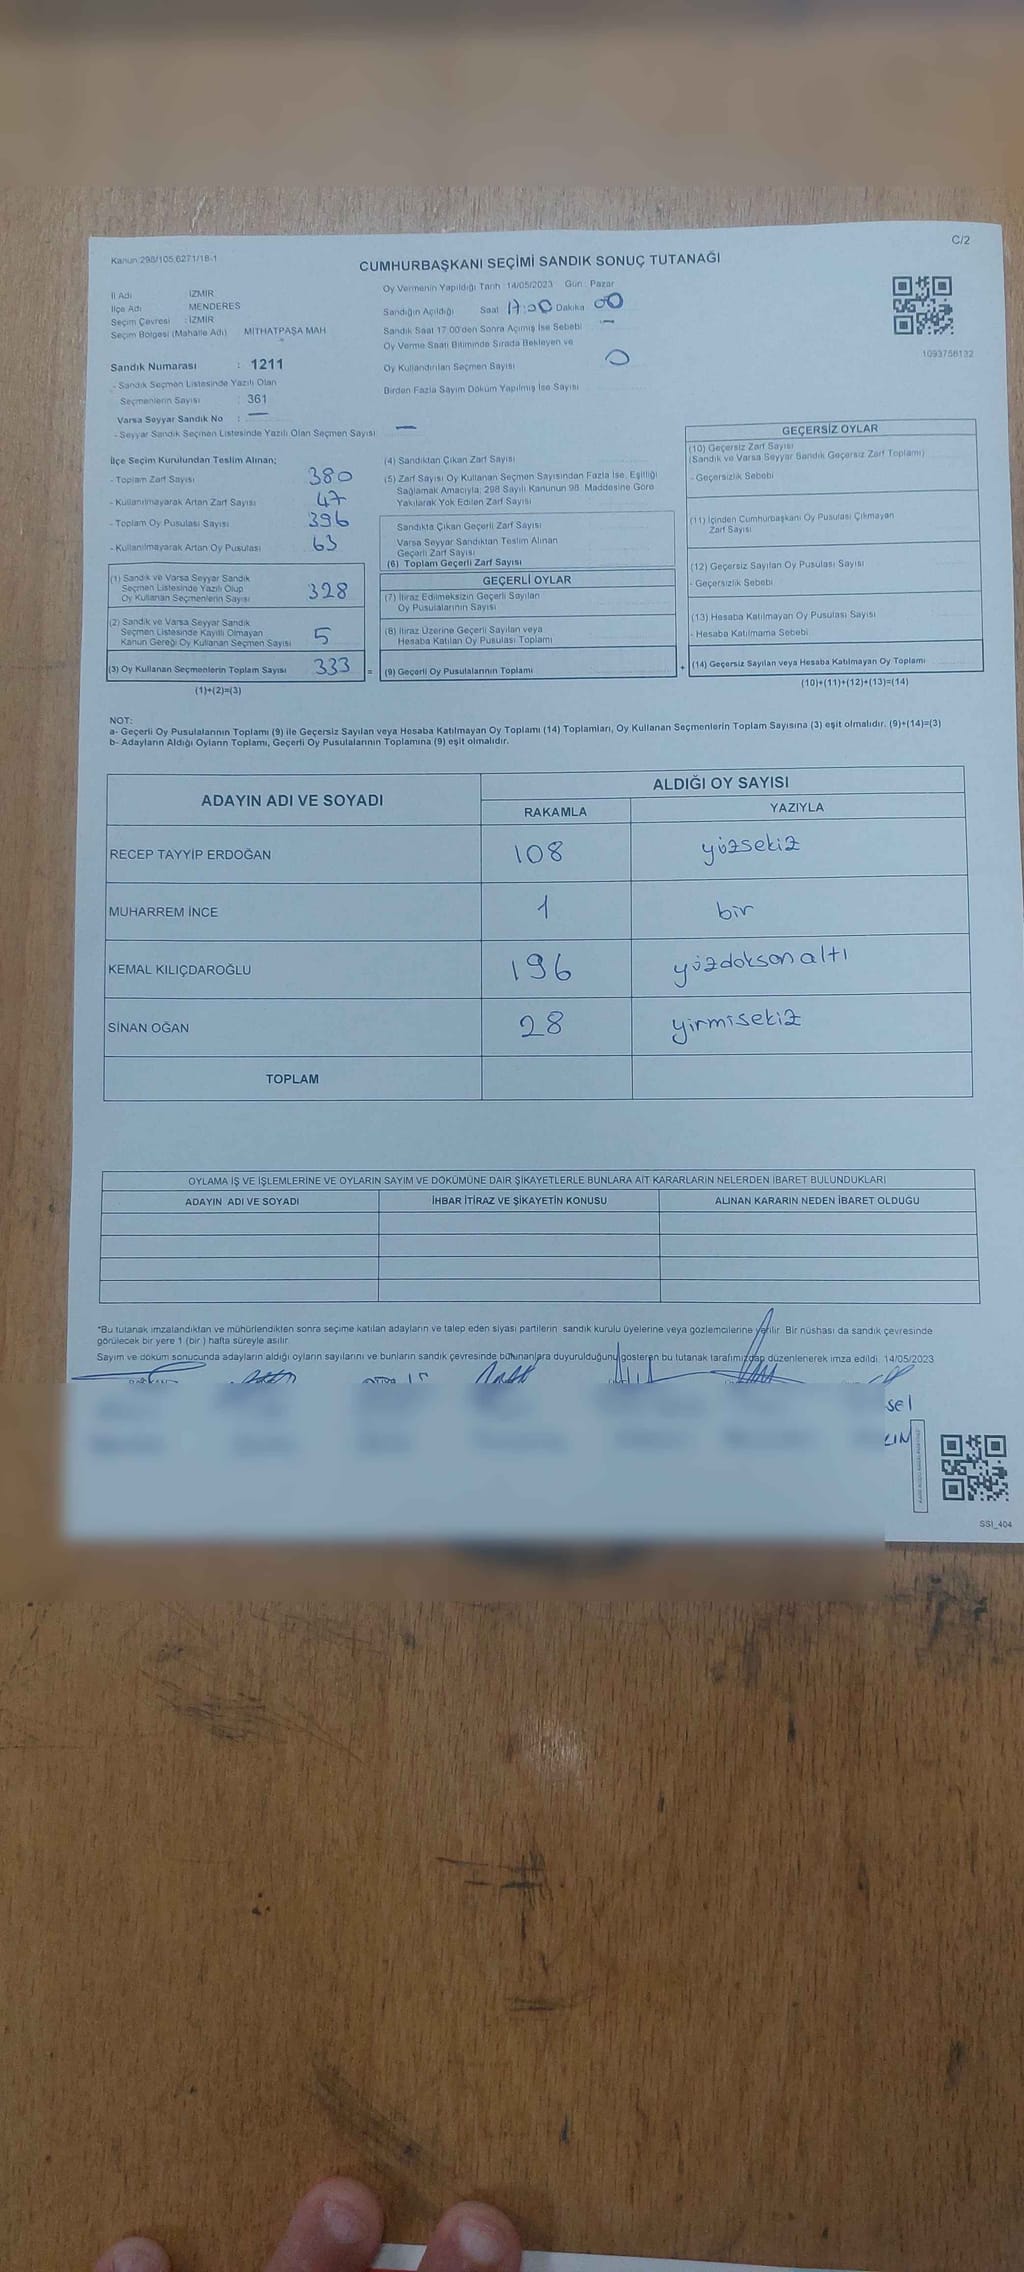 Kanun 298/105,6271/18-1
C/2
CUMHURBAŞKANI SEÇİMİ SANDIK SONUÇ TUTANAĞI
İl Adı : İZMİR
İlçe Adı MENDERES
Seçim Çevresi : İZMİR
Seçim Bölgesi (Mahalle Adı) MİTHATPAŞA MAH
Sandık Numarası : 1211
- Sandık Seçmen Listesinde Yazılı Olan
Seçmenlerin Sayısı : 361
Varsa Seyyar Sandık No : —
- Seyyar Sandık Seçmen Listesinde Yazılı Olan Seçmen Sayısı —
Oy Vermenin Yapıldığı Tarih : 14/05/2023 Gün : Pazar
Sandığın Açıldığı Saat 17:00 Dakika 00
Sandık Saat 17:00'den Sonra Açımış İse Sebebi —
Oy Verme Saati Bitiminde Sırada Bekleyen ve
Oy Kullandırılan Seçmen Sayısı 0
Birden Fazla Sayım Döküm Yapılmış İse Sayısı
1093756132
İlçe Seçim Kurulundan Teslim Alınan;
- Toplam Zarf Sayısı 380
- Kullanılmayarak Artan Zarf Sayısı 47
- Toplam Oy Pusulası Sayısı 396
- Kullanılmayarak Artan Oy Pusulası 63
(1) Sandık ve Varsa Seyyar Sandık
Seçmen Listesinde Yazılı Olup
Oy Kullanan Seçmenlerin Sayısı 328
(2) Sandık ve Varsa Seyyar Sandık
Seçmen Listesinde Kayıtlı Olmayan
Kanun Gereği Oy Kullanan Seçmen Sayısı 5
(3) Oy Kullanan Seçmenlerin Toplam Sayısı 333 =
(1)+(2)=(3)
(4) Sandıktan Çıkan Zarf Sayısı
(5) Zarf Sayısı Oy Kullanan Seçmen Sayısından Fazla İse, Eşitliği
Sağlamak Amacıyla; 298 Sayılı Kanunun 98. Maddesine Göre
Yakılarak Yok Edilen Zarf Sayısı
Sandıkta Çıkan Geçerli Zarf Sayısı
Varsa Seyyar Sandıktan Teslim Alınan
Geçerli Zarf Sayısı
(6) Toplam Geçerli Zarf Sayısı
GEÇERLİ OYLAR
(7) İtiraz Edilmeksizin Geçerli Sayılan
Oy Pusulalarının Sayısı
(8) İtiraz Üzerine Geçerli Sayılan veya
Hesaba Katılan Oy Pusulası Toplamı
(9) Geçerli Oy Pusulalarının Toplamı +
GEÇERSİZ OYLAR
(10) Geçersiz Zarf Sayısı
(Sandık ve Varsa Seyyar Sandık Geçersiz Zarf Toplamı)
- Geçersizlik Sebebi
(11) İçinden Cumhurbaşkanı Oy Pusulası Çıkmayan
Zarf Sayısı
(12) Geçersiz Sayılan Oy Pusulası Sayısı
- Geçersizlik Sebebi
(13) Hesaba Katılmayan Oy Pusulası Sayısı
- Hesaba Katılmama Sebebi
(14) Geçersiz Sayılan veya Hesaba Katılmayan Oy Toplamı
(10)+(11)+(12)+(13)=(14)
NOT:
a- Geçerli Oy Pusulalarının Toplamı (9) ile Geçersiz Sayılan veya Hesaba Katılmayan Oy Toplamı (14) Toplamları, Oy Kullanan Seçmenlerin Toplam Sayısına (3) eşit olmalıdır. (9)+(14)=(3)
b- Adayların Aldığı Oyların Toplamı, Geçerli Oy Pusulalarının Toplamına (9) eşit olmalıdır.
ADAYIN ADI VE SOYADI
ALDIĞI OY SAYISI
RAKAMLA YAZIYLA
RECEP TAYYİP ERDOĞAN 108 yüzsekiz
MUHARREM İNCE 1 bir
KEMAL KILIÇDAROĞLU 196 yüzdoksan altı
SİNAN OĞAN 28 yirmisekiz
TOPLAM
OYLAMA İŞ VE İŞLEMLERİNE VE OYLARIN SAYIM VE DÖKÜMÜNE DAİR ŞİKAYETLERLE BUNLARA AİT KARARLARIN NELERDEN İBARET BULUNDUKLARI
ADAYIN ADI VE SOYADI İHBAR İTİRAZ VE ŞİKAYETİN KONUSU ALINAN KARARIN NEDEN İBARET OLDUĞU
*Bu tutanak imzalandıktan ve mühürlendikten sonra seçime katılan adayların ve talep eden siyasi partilerin sandık kurulu üyelerine veya gözlemcilerine verilir. Bir nüshası da sandık çevresinde
görülecek bir yere 1 (bir ) hafta süreyle asılır.
Sayım ve döküm sonucunda adayların aldığı oyların sayılarını ve bunların sandık çevresinde bulunanlara duyurulduğunu gösteren bu tutanak tarafımızdan düzenlenerek imza edildi. 14/05/2023
SSI_404